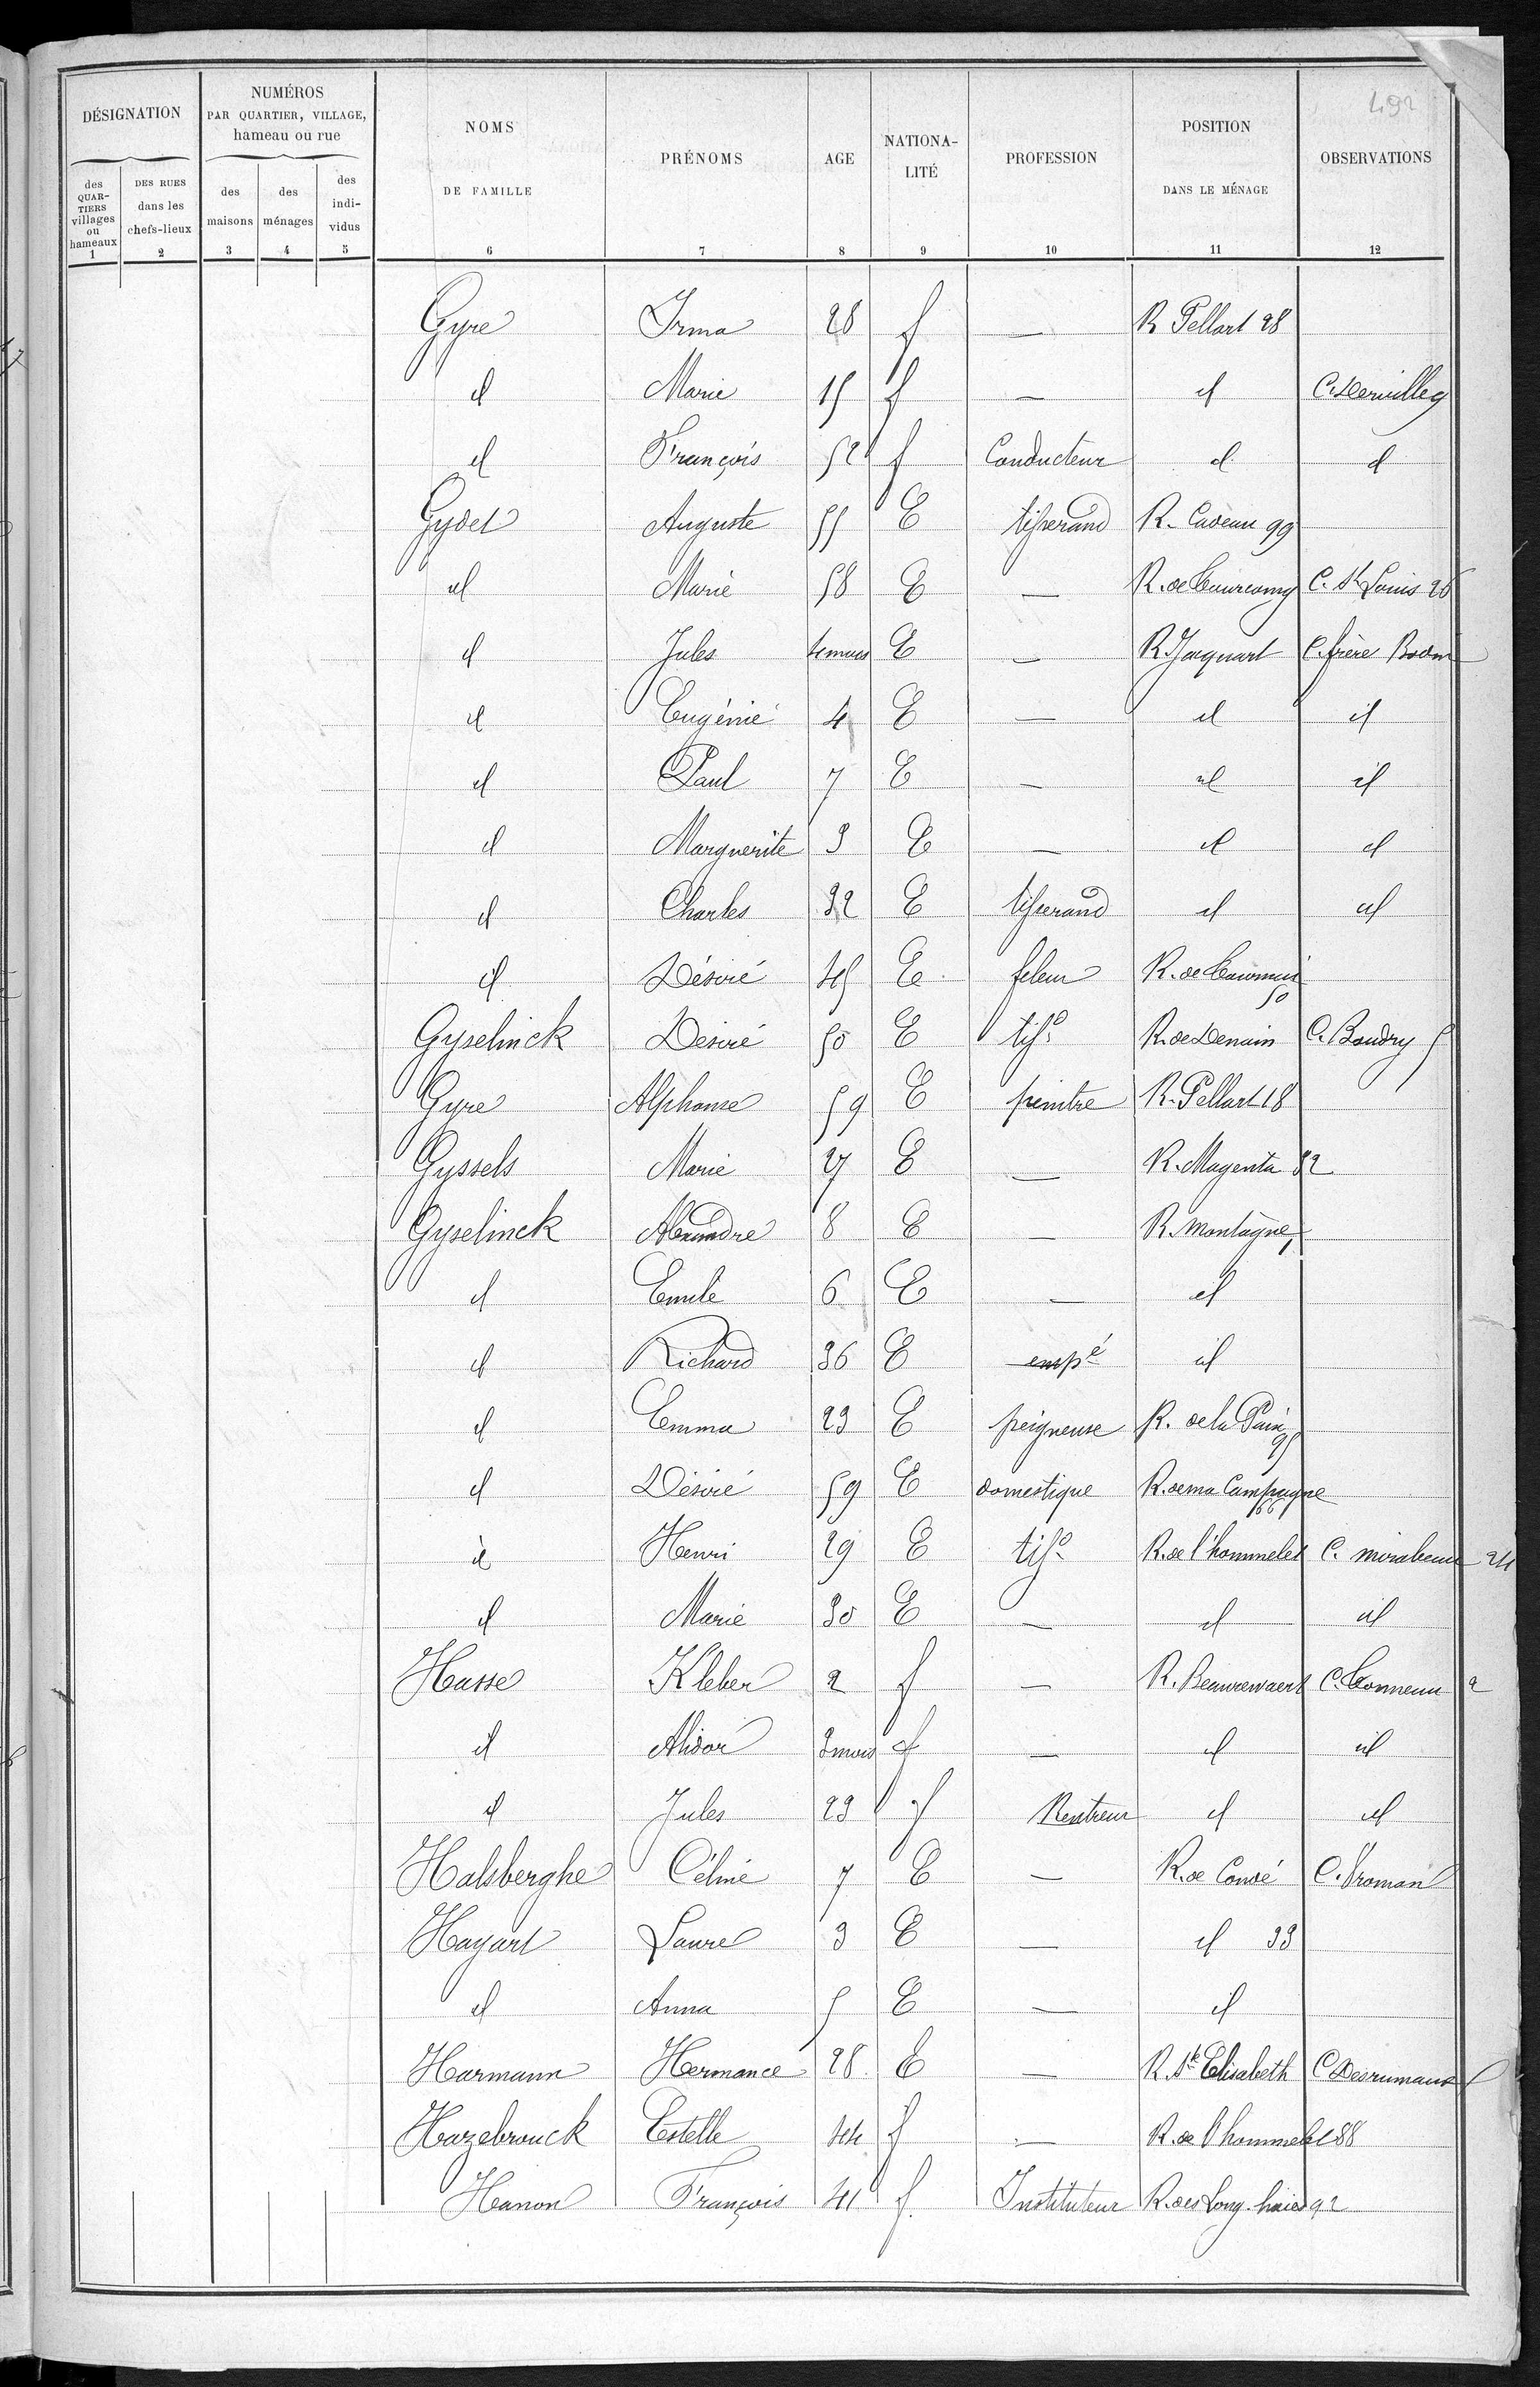 492
DÉSIGNATION
NUMÉROS PAR QUARTIER, VILLAGE, hameau ou rue
NOMS DE FAMILLE
PRÉNOMS
AGE
NATIONA-LITÉ
PROFESSION
POSITION DANS LE MÉNAGE
OBSERVATIONS
des QUAR-TIERS villages ou hameaux
DES RUES dans les chefs-lieux
des maisons
des ménages
des indi-vidus
1 2 3 4 5 6 7 8 9 10 11 12
Gyre Irma 28 f — R Pellart 28
id Marie 15 f — id C. Dervilleg
id François 52 f Conducteur id id
Gydet Auguste 55 E tisserand R. Cadeau 99
id Marie 58 E — R. de Tourcoing C. St Louis 26
id Jules 4 mois E — R Jacquart C. frère
id Eugénie 4 E — id id
id Paul 7 E — id id
id Marguerite 3 E — id id
id Charles 32 E tisserand id id
id Désiré 45 E fileur R. de 50
Gyselinck Désiré 50 E tisd R. de Denain C. Baudry 5
Gyre Alphonse 59 E peintre R. Pellart 18
Gyssels Marie 27 E — R. Magenta 82
Gyselinck Alexandre 8 E — R. Montagne,
id Emile 6 E — id
id Richard 36 E empé id
id Emma 23 E peigneuse R. de la Paix 95
id Désiré 59 E domestique R. de ma Campagne 66
id Henri 29 E tisd R. de l'hommelet C. mirabeau 24
id Marie 30 E — id id
Hasse Kleber 2 f — R. Beaurewaert C. Bonneau 2
id Alidor 3 mois f — id id
id Jules 23 f Rentreur id id
Halsberghe Céline 7 E — R. de Condé C. Vroman
Hayart Laure 3 E — id 33
id Anna 5 E — id
Harmann Hermance 28 E — R. Ste Elisabeth C Desrumaux
Hazebrouck Estelle 44 f — R. de l'hommelet 88
Hanon François 41 f. Instituteur R. des Long. haies 92